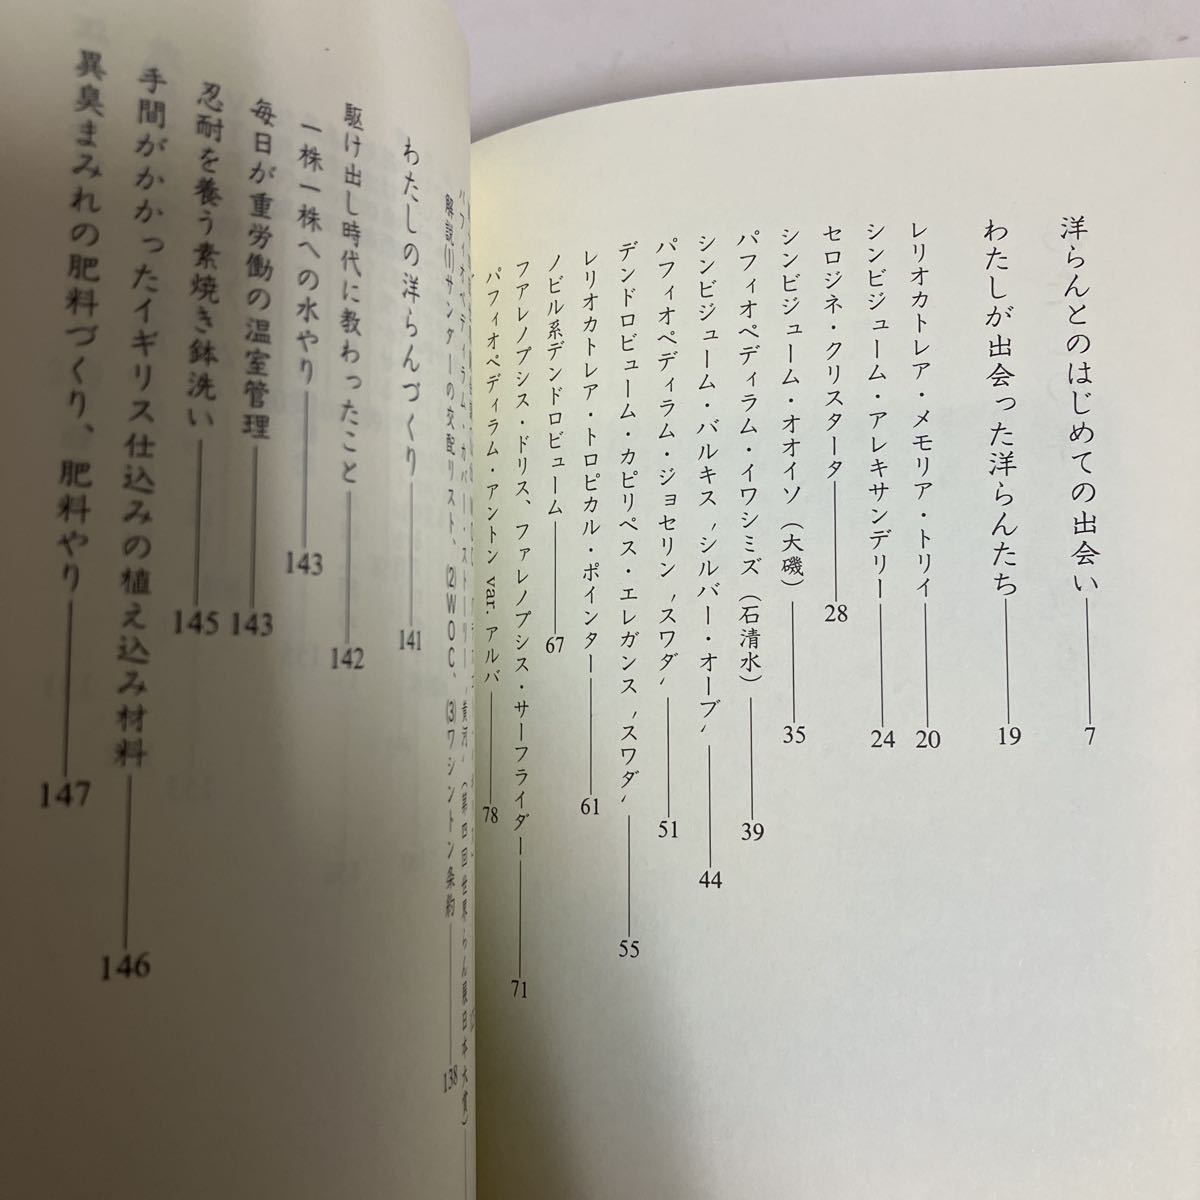 洋らんとのはじめての出会い――7
わたしが出会った洋らんたち――19
レリオカトレア・メモリア・トリイ――20
シンビジューム・アレキサンデリー――24
セロジネ・クリスタータ――28
シンビジューム・オオイソ（大磯）――35
パフィオペディラム・イワシミズ（石清水）――39
シンビジューム・バルキス〝シルバー・オーブ〟――44
パフィオペディラム・ジョセリン〝スワダ〟――51
デンドロビューム・カピリペス・エレガンス〝スワダ〟――55
レリオカトレア・トロピカル・ポインター――61
ノビル系デンドロビューム――67
ファレノプシス・ドリス、ファレノプシス・サーフライダー――71
パフィオペディラム・アントン var. アルバ――78
パフィオペディラム・カバー・ストーリー〝黄河〟（第四回世界らん展日本大賞）
解説(1)サンダーの交配リスト、(2)WOC、(3)ワシントン条約――138
わたしの洋らんづくり――141
駆け出し時代に教わったこと――142
一株一株への水やり――143
毎日が重労働の温室管理――143
忍耐を養う素焼き鉢洗い――145
手間がかかったイギリス仕込みの植え込み材料――146
異臭まみれの肥料づくり、肥料やり――147